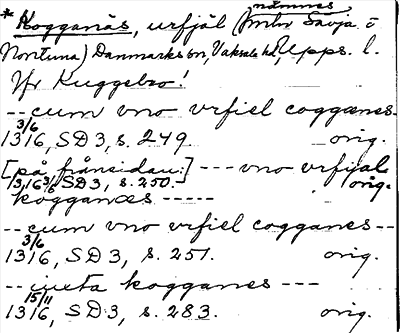 nämnes
* Kogganäs, urfjäl (mellan Sävja o
Nontuna) Danmarks sn, Vaksala hd, Upps. l.
Jfr Kuggebro!
-- cum vno vrfiel cogganes
3/6
1316, SD 3, s. 249. orig.
[på frånsidan:] --- vno vrfijal
1316 3/6 SD 3, s. 250. orig.
koggances -----
-- cum vno vrfiel cogganes --
3/6
1316, SD 3, s. 251. orig.
-- iuxta kogganes ---
15/11
1316, SD 3, s. 283. orig.